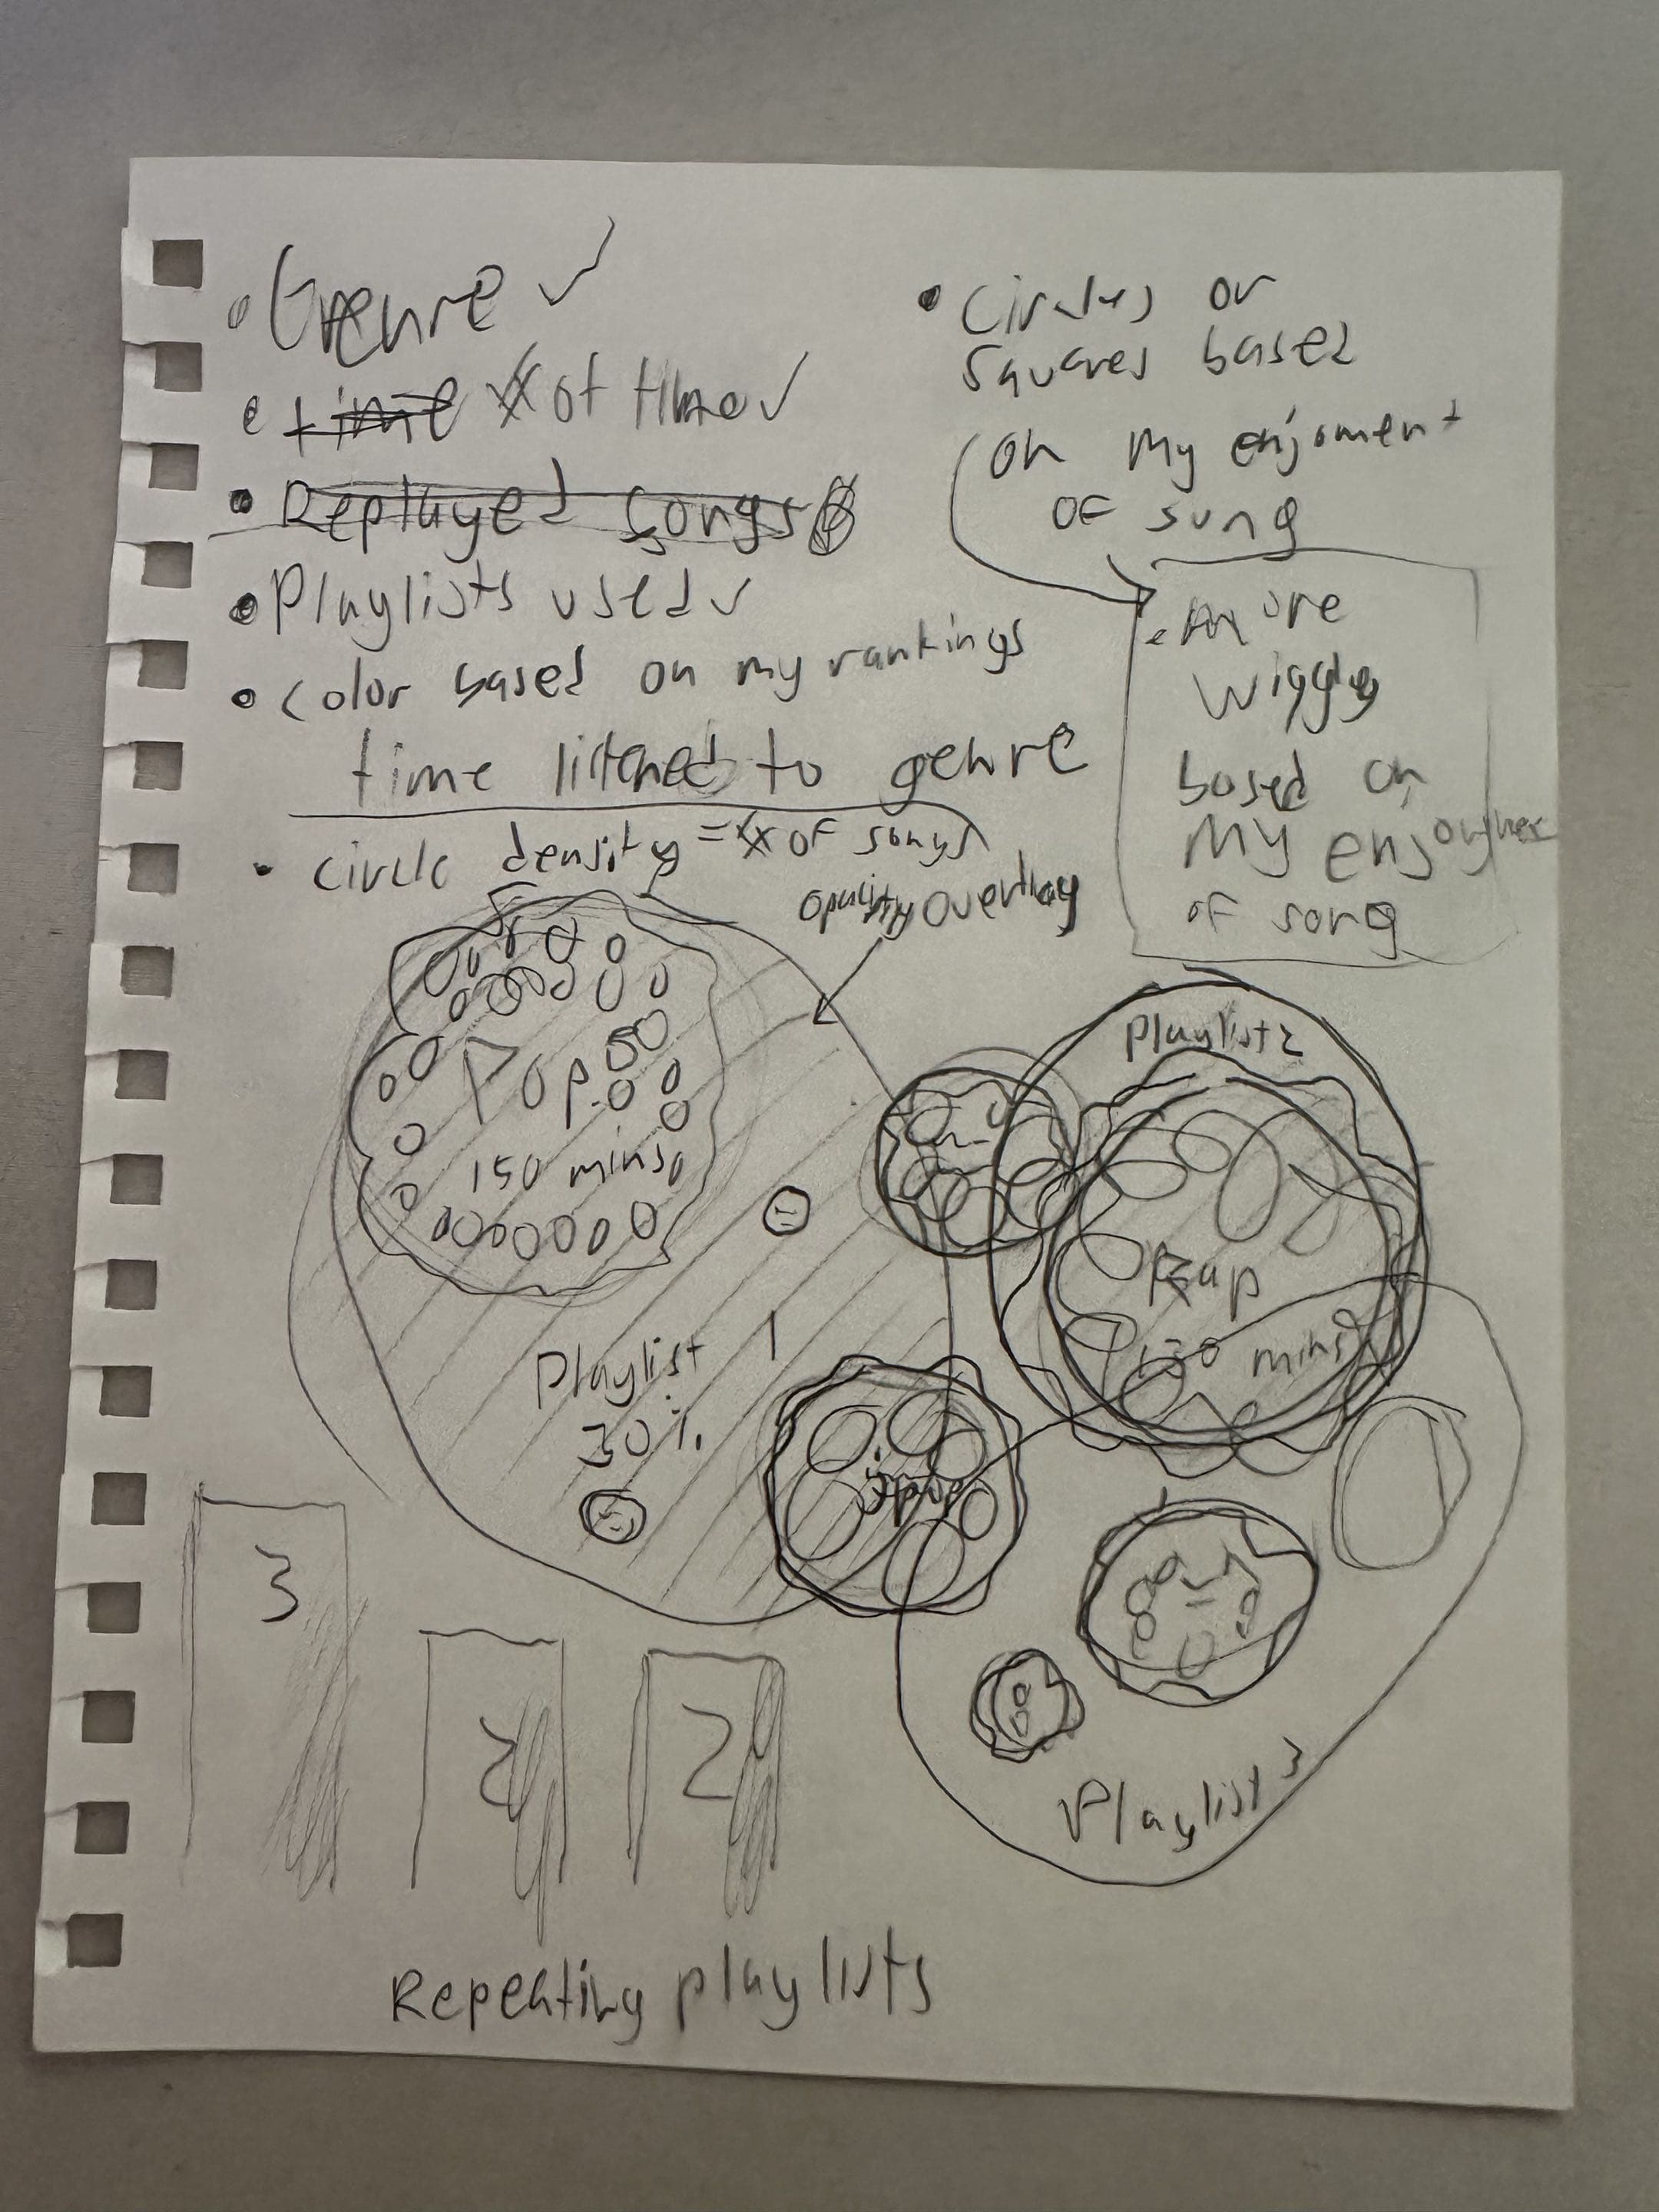 • Genre ✓
• time # of time ✓
• Replayed songs
• Playlists used ✓
• color based on my rankings
time listened to genre
• circle density = # of songs
opacity overlay
• Circles or
squares based
on my enjoment
of song
• more
wiggles
based on
my enjoymen
of song
Pop
150 mins
Playlist 1
30%
Playlist 2
Rap
130 mins
jpop
Playlist 3
3
2
2
Repeating playlists